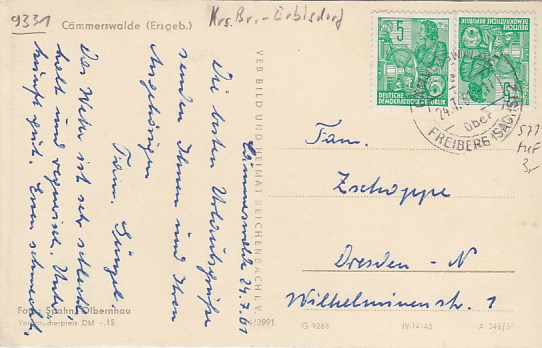 9331
Cämmerswalde (Erzgeb.)
Krs. Br.-Erbisdorf
Cämmerswalde 24.7.61
Die besten Urlaubsgrüße
senden Ihnen und Ihren
Angehörigen
Fam. Süngel
Das Wetter ist sehr schlecht,
kalt und regnerisch. Unter-
kunft gut. Essen schmeckt.
VEB BILD UND HEIMAT REICHENBACH I. V.
Foto: Spahn, Olbernhau
Verbraucherpreis DM -,15
5
DEUTSCHE
DEMOKRATISCHE REPUBLIK
5
DEUTSCHE
DEMOKRATISCHE REPUBLIK
über
FREIBERG (SACHS) 2
577
3,-
Fam.
Zschoppe
Dresden - N
Wilhelminenstr. 1
/2991
G 9288
IV-14-45